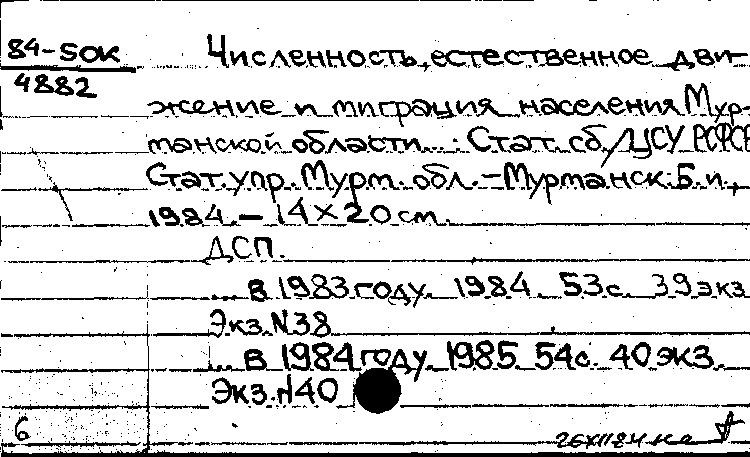 84-5ОК
4882
Численность, естественное дви-
жение и миграция населения Мур-
манской области... : Стат. сб./ЦСУ РСФСР
Стат. упр. Мурм. обл. - Мурманск: Б.и.,
1984. - 14×20 см.
ДСП.
... в 1983 году. 1984. 53с. 39 экз
Экз. N38
... в 1984 году. 1985. 54с. 40 экз.
Экз. N40
6